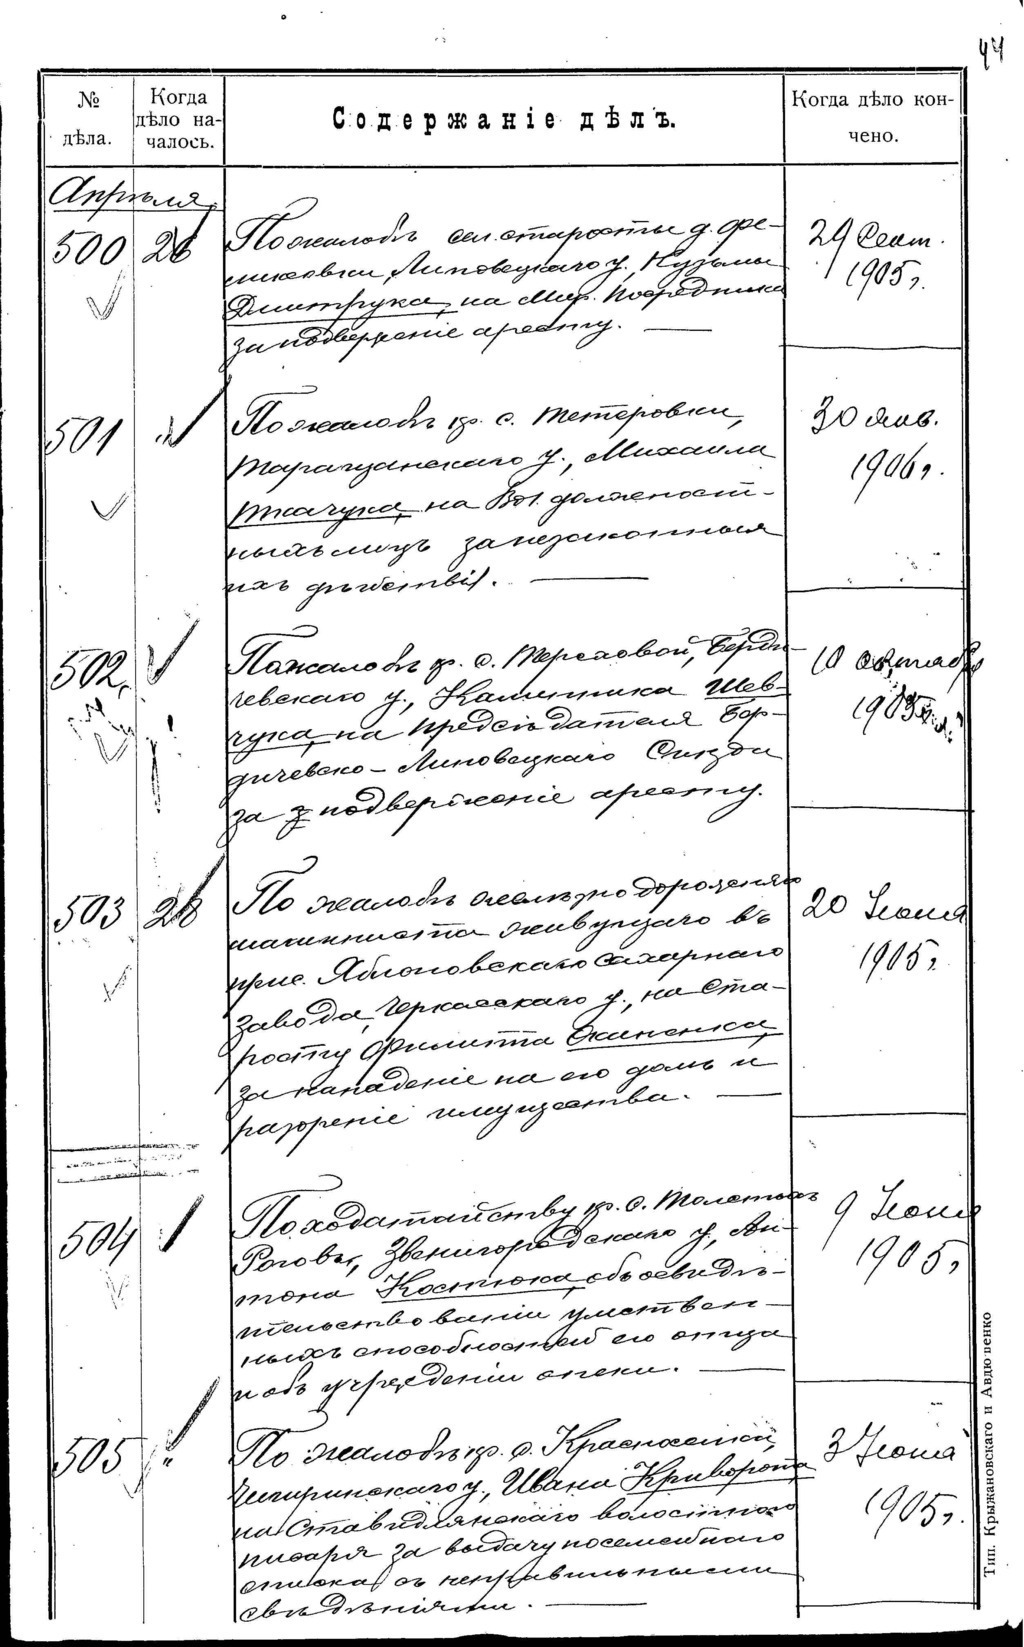 44
№ дѣла.
Когда дѣло началось.
Содержаніе дѣлъ.
Когда дѣло кончено.
Апрѣля
500 26 По жалобѣ сел. старосты д. Фе-
ликсовки, Липовецкаго у., Кузьмы
Дмитрука, на Мир. Посредника
за подверженіе аресту.
29 Сент.
1905 г.
501 " По жалобѣ кр. с. Тетеровки,
Таращанскаго у., Михаила
Ткачука, на Вол. должност-
ныхъ лицъ за незаконныя
ихъ дѣйствія.
30 янв.
1906 г.
502 По жалобѣ кр. с. Терехової, Берди-
чевскаго у., Каленника Шев-
чука, на предсѣдателя Бер-
дичевско-Липовецкаго Съѣзда
за подверженіе аресту.
10 октября
1905 г.
503 28 По жалобѣ желѣзнодорожнаго
машиниста живущаго въ
прис. Яблоновскаго Сахарнаго
Завода, Черкасскаго у., на Ста-
росту Филиппа
за нападеніе на его домъ и
разореніе имущества.
20 Іюня
1905 г.
504 " По ходатайству кр. с. Толстыхъ
Роговъ, Звенигородскаго у., Ан-
тона Костюка, объ освидѣ-
тельствованіи умствен-
ныхъ способностей его отца
и объ учрежденіи опеки.
9 Іюня
1905 г.
505 " По жалобѣ кр. с. Красноселки,
Чигиринскаго у., Ивана Криворота
на Ставидлянскаго волостного
писаря за выдачу посемейнаго
списка съ неправильными
свѣдѣніями.
3 Іюня
1905 г.
Тип. Крыжановскаго и Авдюшенко